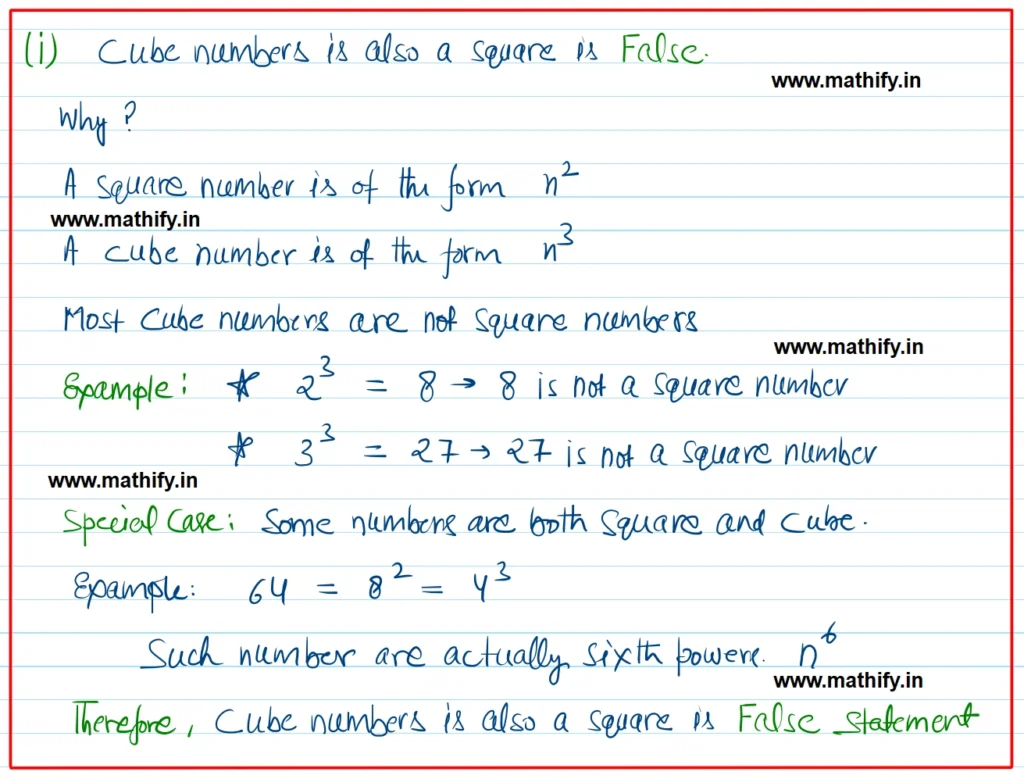 (i) Cube numbers is also a square is False.
www.mathify.in
Why?
A square number is of the form n²
www.mathify.in
A cube number is of the form n³
Most cube numbers are not square numbers
www.mathify.in
Example: * 2³ = 8 → 8 is not a square number
* 3³ = 27 → 27 is not a square number
www.mathify.in
Special Case: Some numbers are both square and cube.
Example: 64 = 8² = 4³
Such number are actually sixth powere. n⁶
www.mathify.in
Therefore, Cube numbers is also a square is False statement